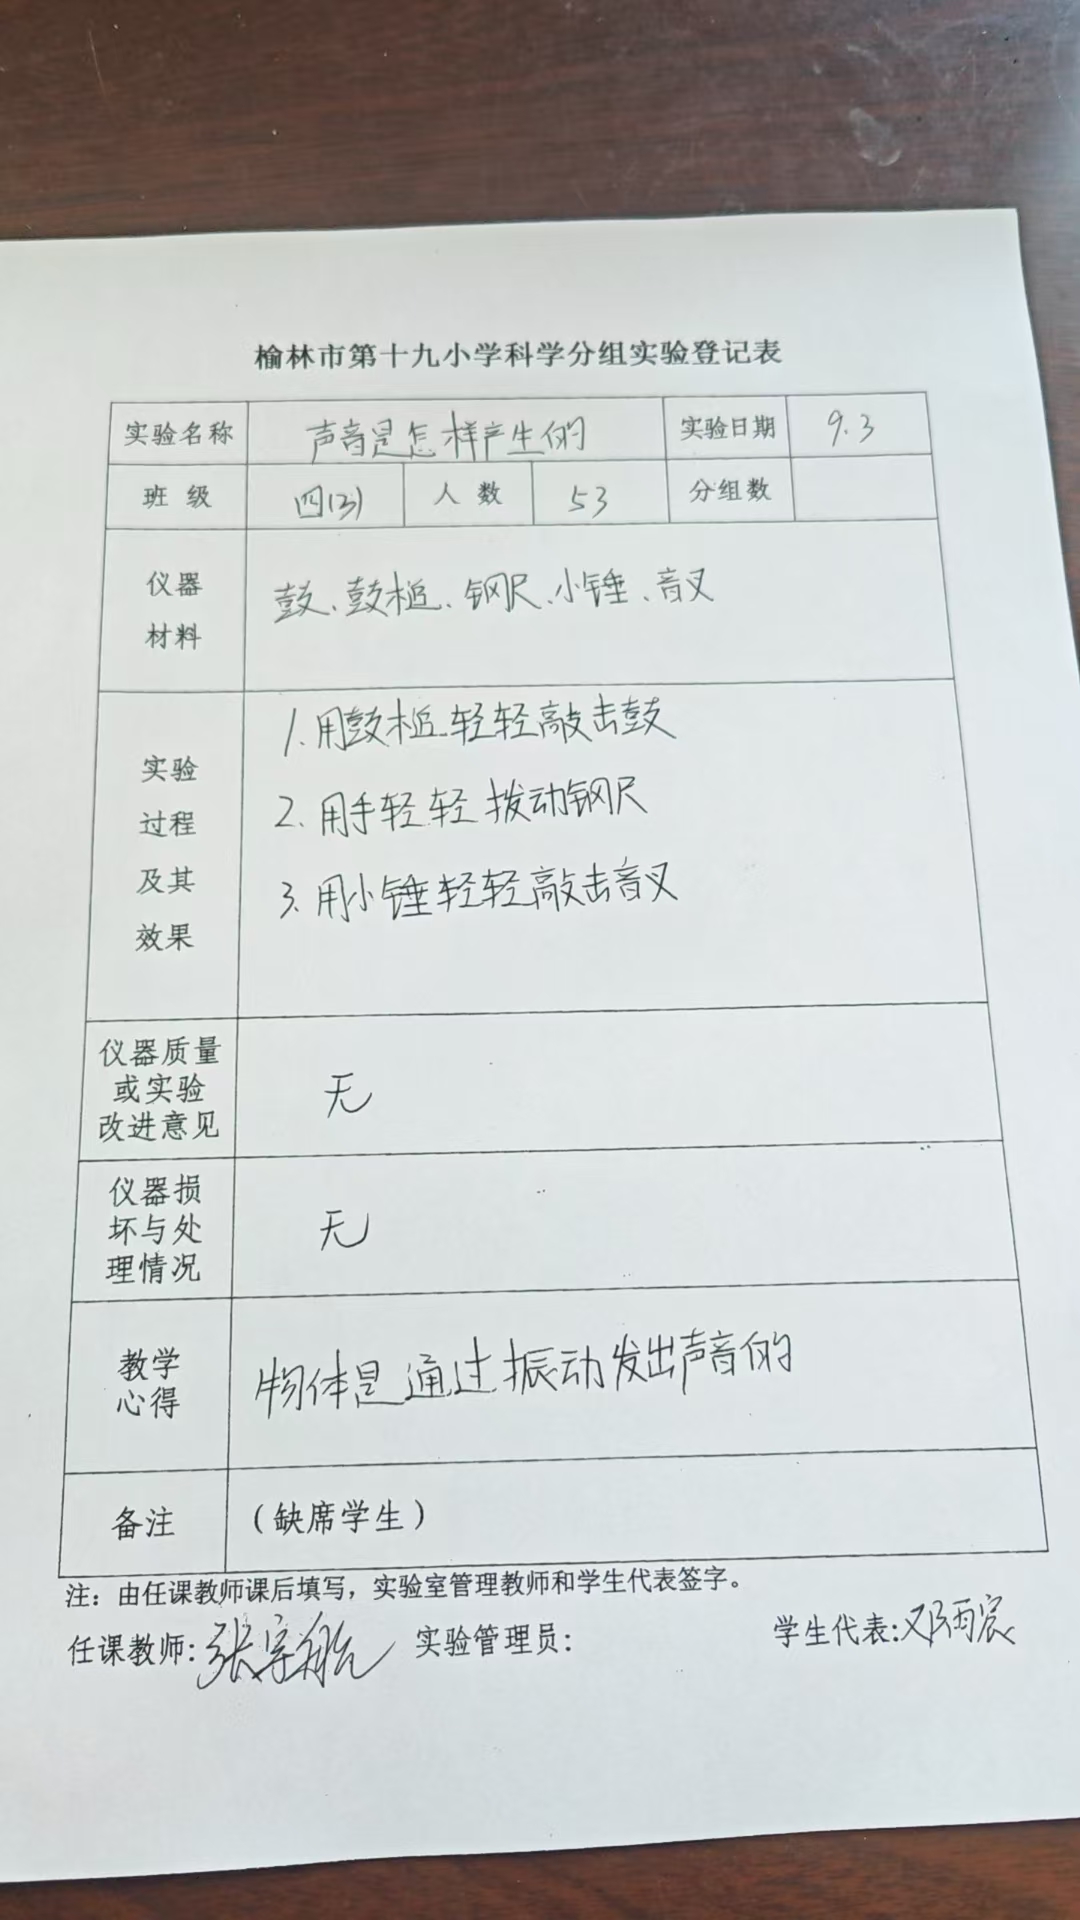 榆林市第十九小学科学分组实验登记表
实验名称 声音是怎样产生的 实验日期 9.3
班 级 四(3) 人 数 53 分组数
仪器
材料
鼓、鼓槌、钢尺、小锤、音叉
实验
过程
及其
效果
1.用鼓槌轻轻敲击鼓
2.用手轻轻拨动钢尺
3.用小锤轻轻敲击音叉
仪器质量
或实验
改进意见
无
仪器损
坏与处
理情况
无
教学
心得
物体是通过振动发出声音的
备注 (缺席学生)
注：由任课教师课后填写，实验室管理教师和学生代表签字。
任课教师:张宇航 实验管理员: 学生代表:邓雨宸